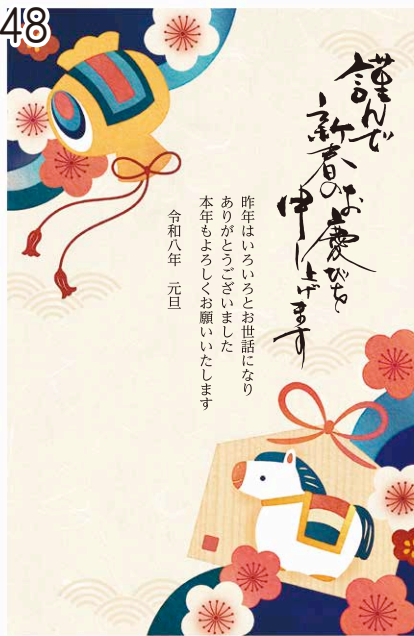 48
謹んで
新春の
お慶びを
申し上げます
昨年はいろいろとお世話になり
ありがとうございました
本年もよろしくお願いいたします
令和八年　元旦